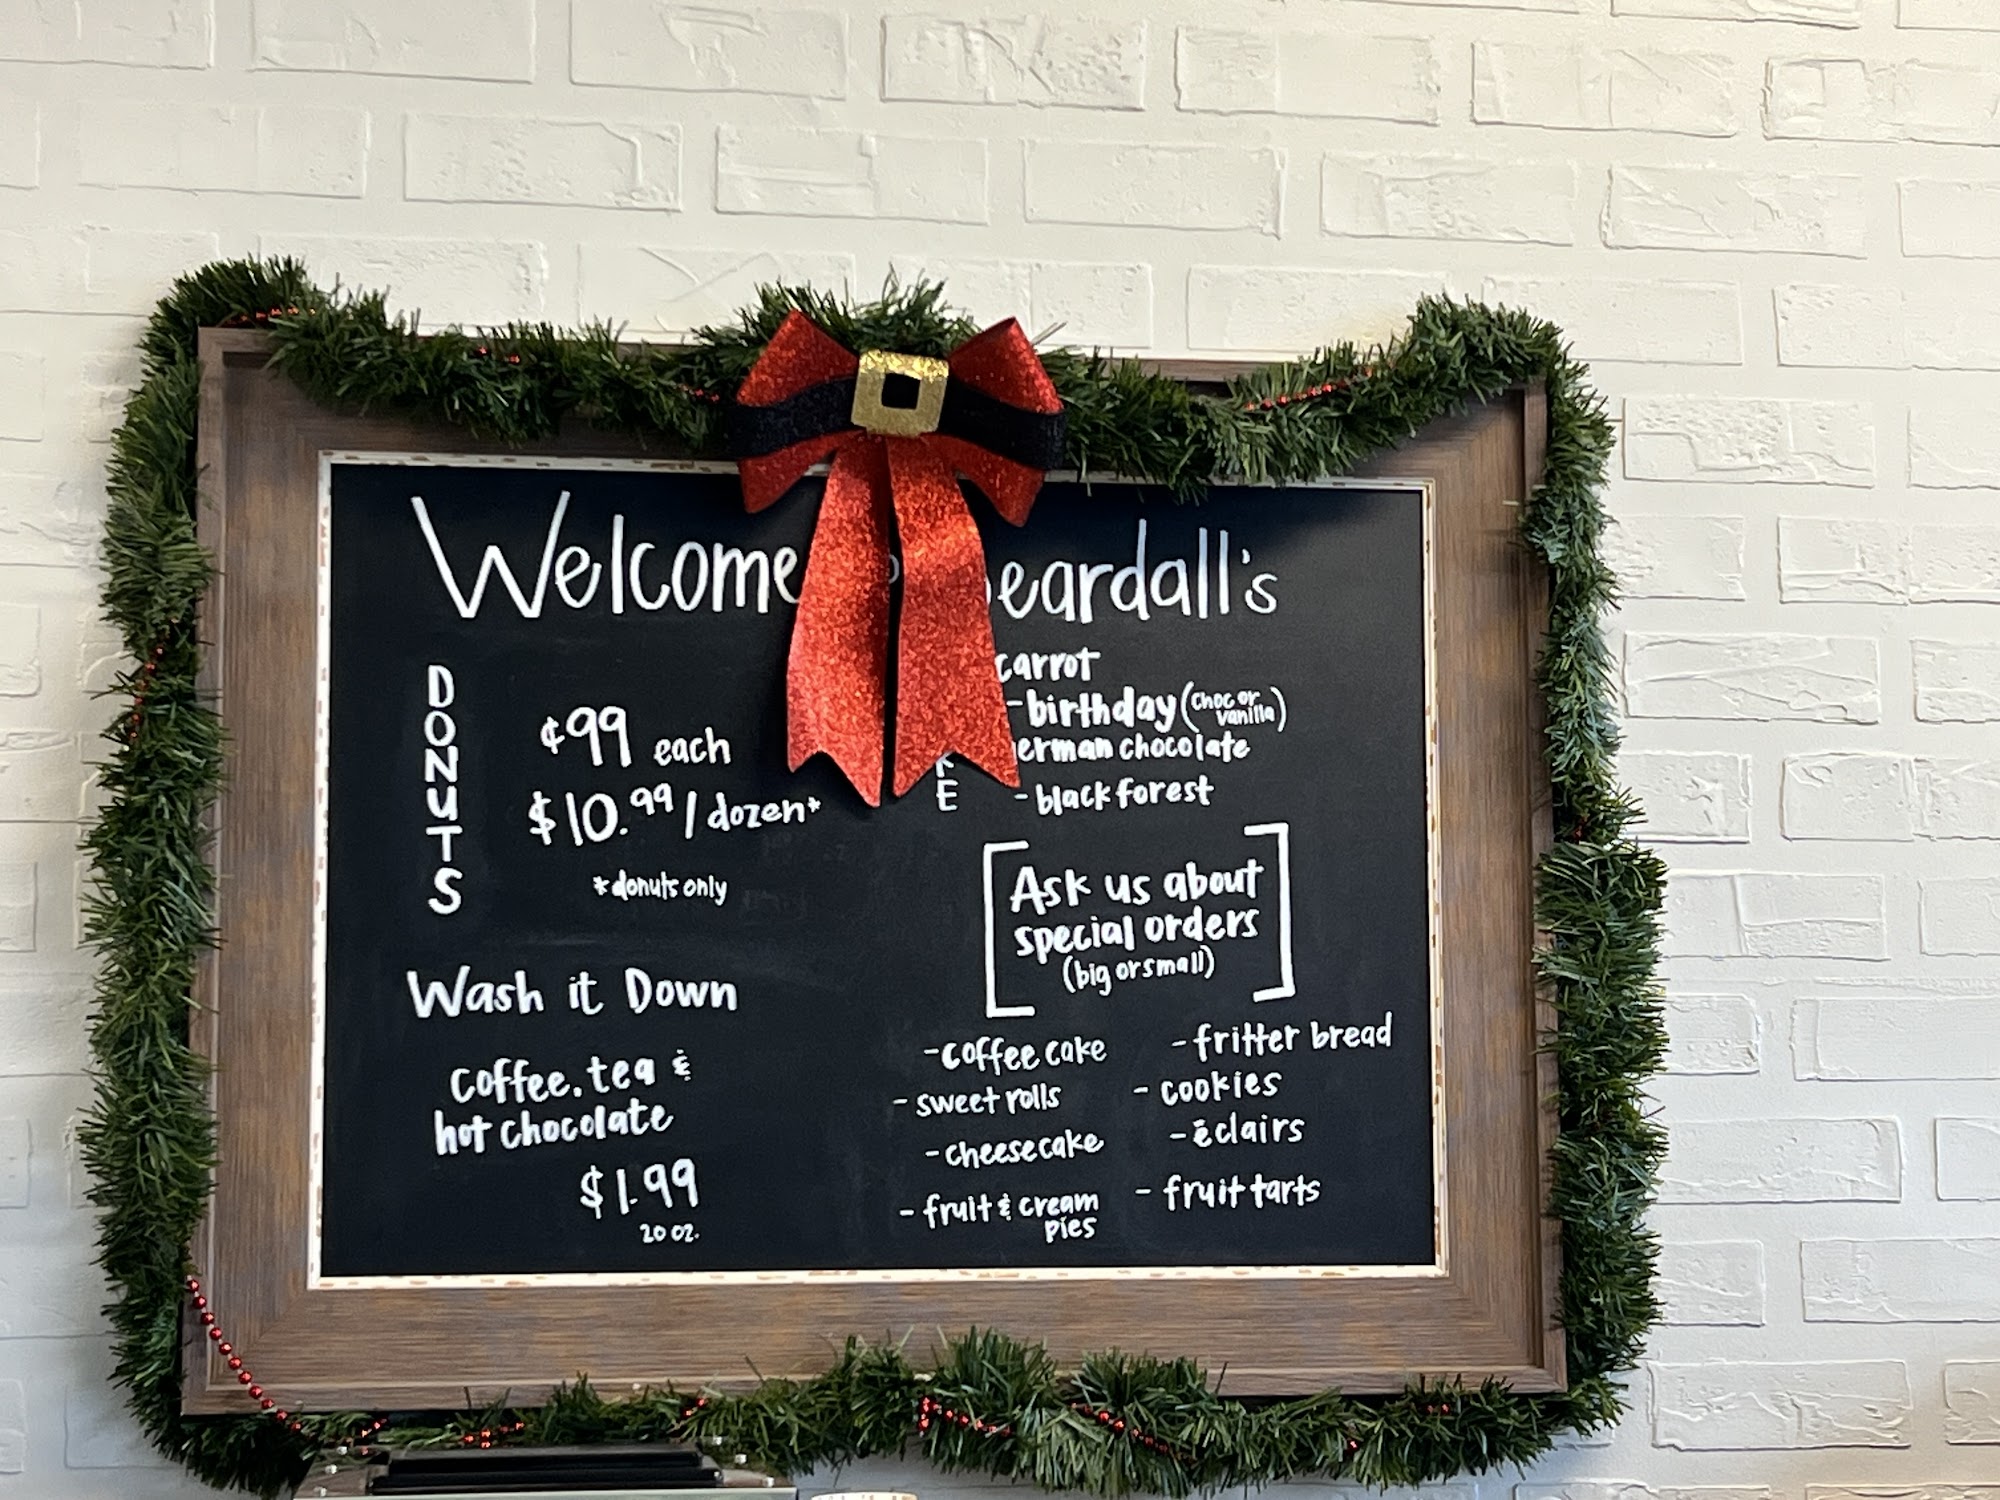 Welcome eardall's
DONUTS
¢99 each
$10.99/dozen*
*donuts only
Wash it Down
coffee, tea &
hot chocolate
$1.99
20 oz.
KE
carrot
-birthday (choc or
vanilla)
erman chocolate
- black forest
[Ask us about
special orders
(big or small)]
-coffee cake
- sweet rolls
- cheesecake
- fruit & cream
pies
- fritter bread
- cookies
- éclairs
- fruit tarts